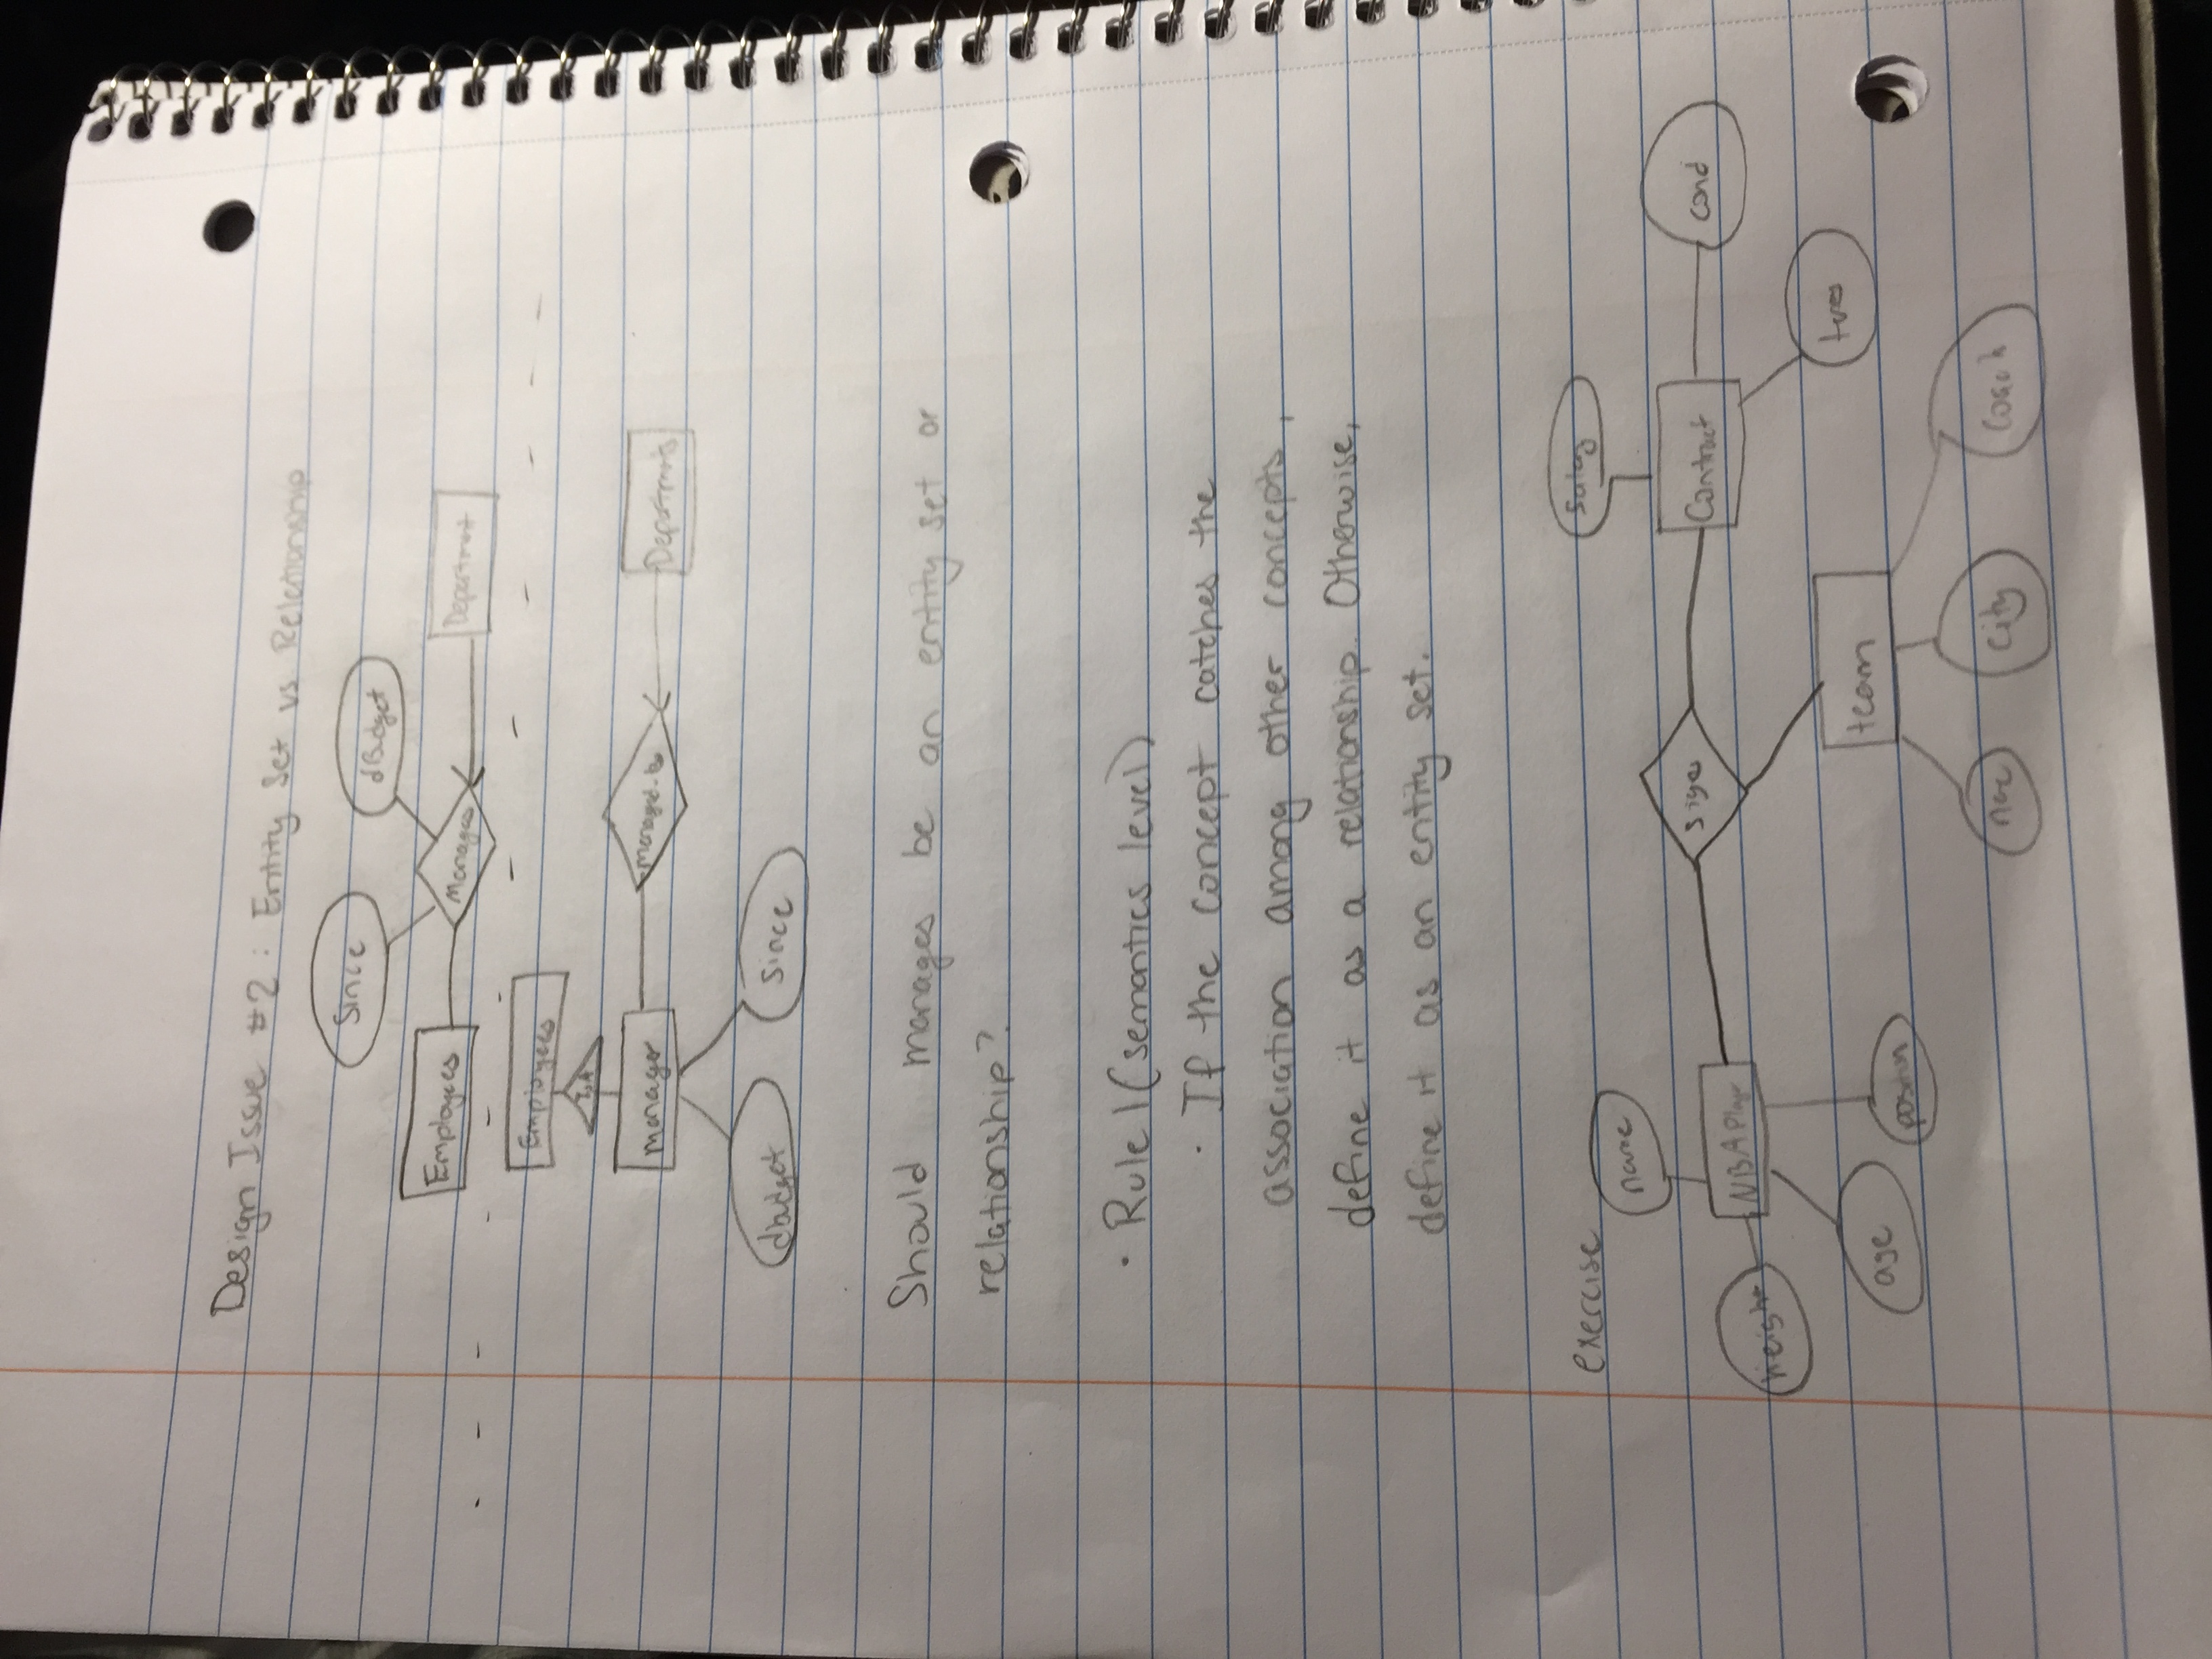 Design Issue #2: Entity Set vs Relationship
Since
dBudget
Employees
Manages
Department
Employees
ISA
manager
managed-by
Departments
dbudget
since
Should manages be an entity set or
relationship?
· Rule 1 (semantics level)
· If the concept catches the
association among other concepts,
define it as a relationship. Otherwise,
define it as an entity set.
exercise
name
salary
signs
Contract
cond
NBA Player
height
team
age
position
city
coach